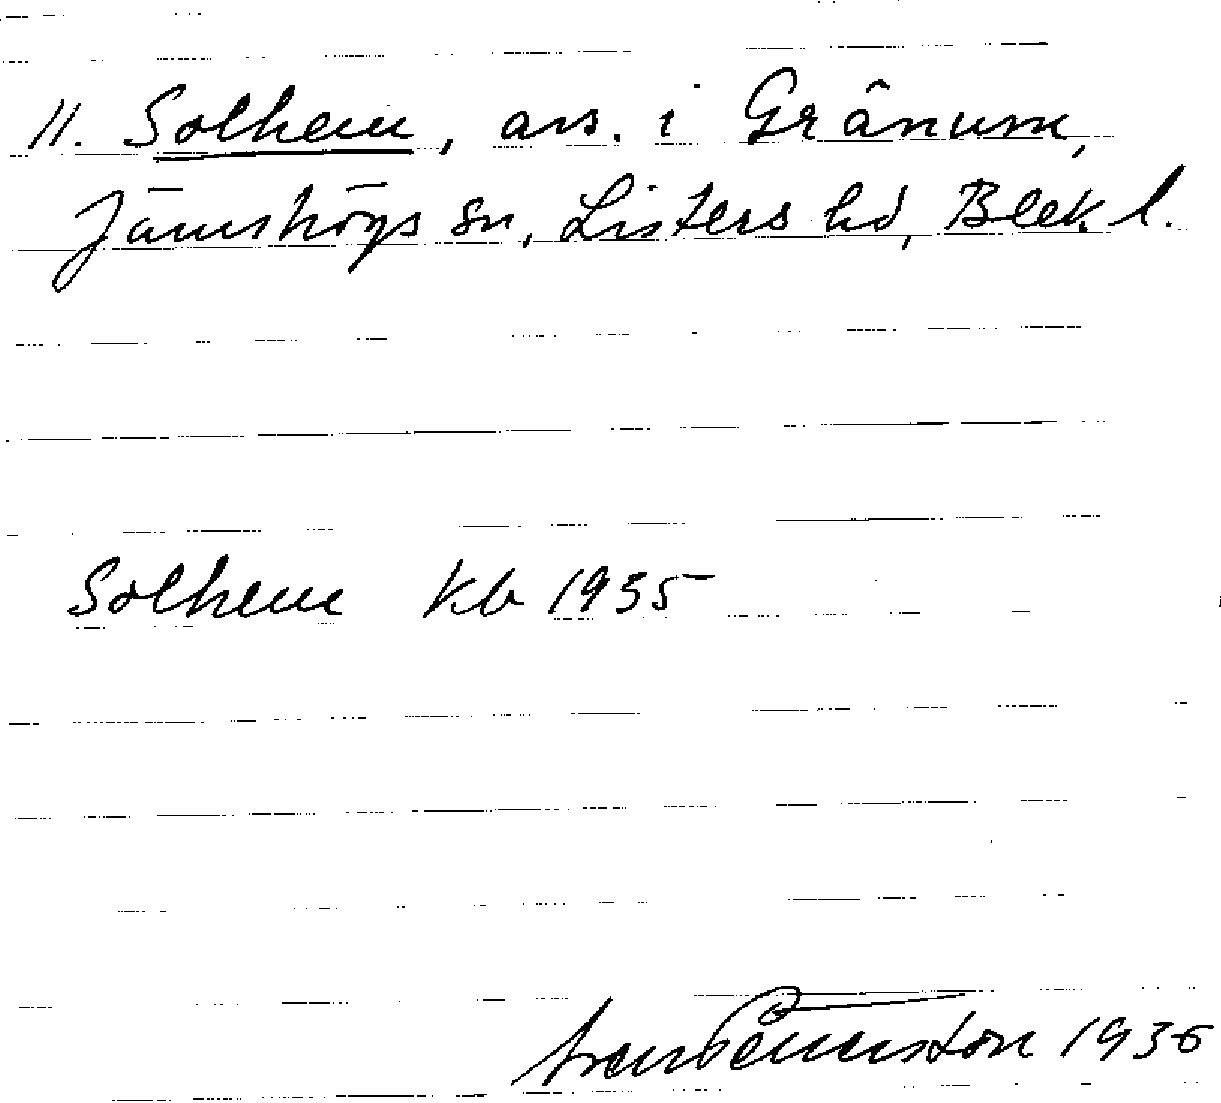 11. Solhem, avs. i Grânum,
Jämshögs sn, Listers hd, Blek l.
Solhem kb 1935
1936